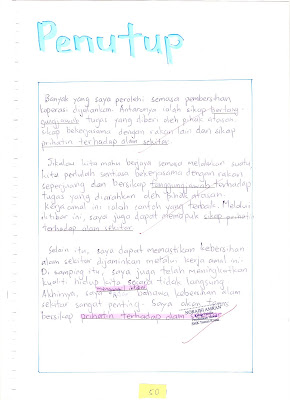 Penutup
Banyak yang saya perolehi semasa pembersihan
laporasi dijalankan. Antaranya ialah sikap bertang-
gungjawab tugas yang diberi oleh pihak atasan
sikap bekerjasama dengan rakan lain dan sikap
prihatin terhadap alam sekitar.
Jikalau kita mahu berjaya semasa melakukan suatu
kita perlulah sentiasa bekerjasama dengan rakan
seperjuang dan bersikap tanggungjawab terhadap
tugas yang diarahkan oleh pihak atasan.
kerja amal ini ialah contoh yang terbaik. Melalui
ikhtibar ini, saya juga dapat memupuk sikap prihatin
terhadap alam sekitar.
Selain itu, saya dapat memastikan kebersihan
alam sekitar dijaminkan melalui kerja amal ini.
Di samping itu, saya juga telah meningkatkan
kualiti hidup kita secara tidak langsung
Akhirnya, saya bahawa kebersihan alam
sekitar sangat penting. Saya akan terus
bersikap prihatin terhadap alam
50